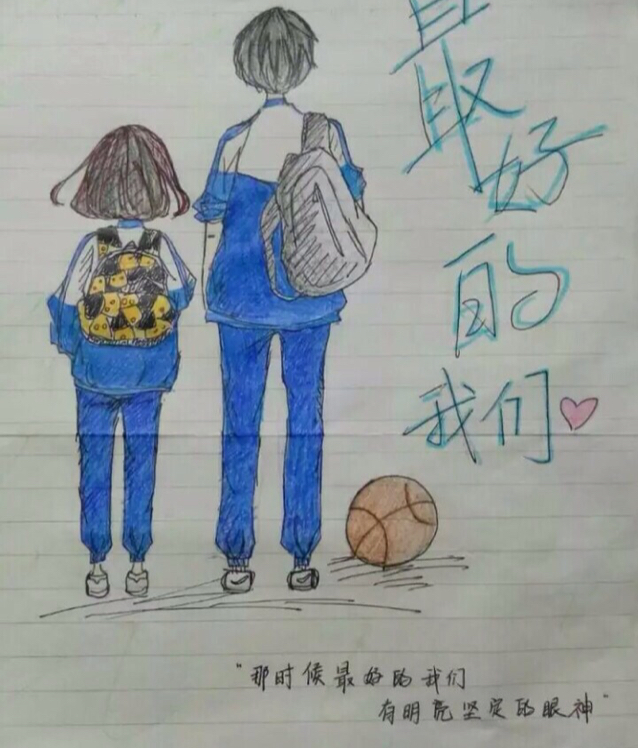 最好
的
我们
"那时候最好的我们
有明亮坚定的眼神"